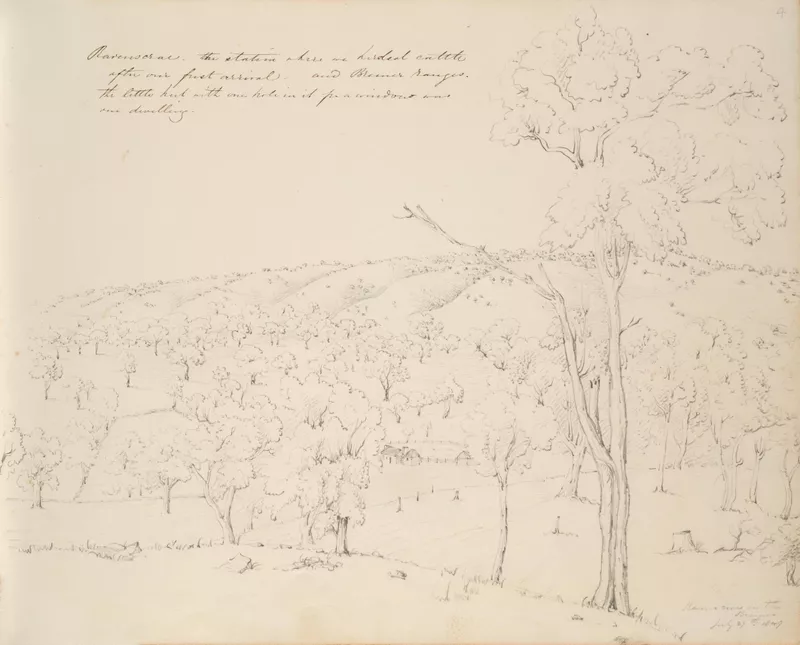 Ravenscrae. the station where we herded cattle
after our first arrival. and Bremer ranges.
the little hut with one hole in it for a window was
our dwelling.
4
on the
July